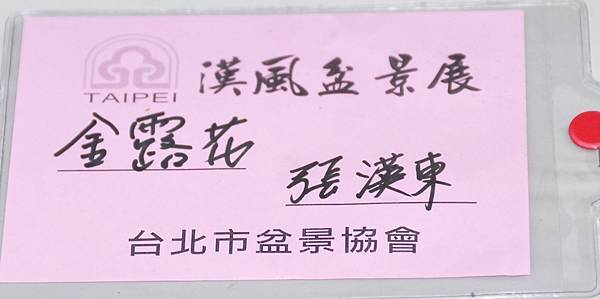 TAIPEI
漢風盆景展
金露花
張漢東
台北市盆景協會